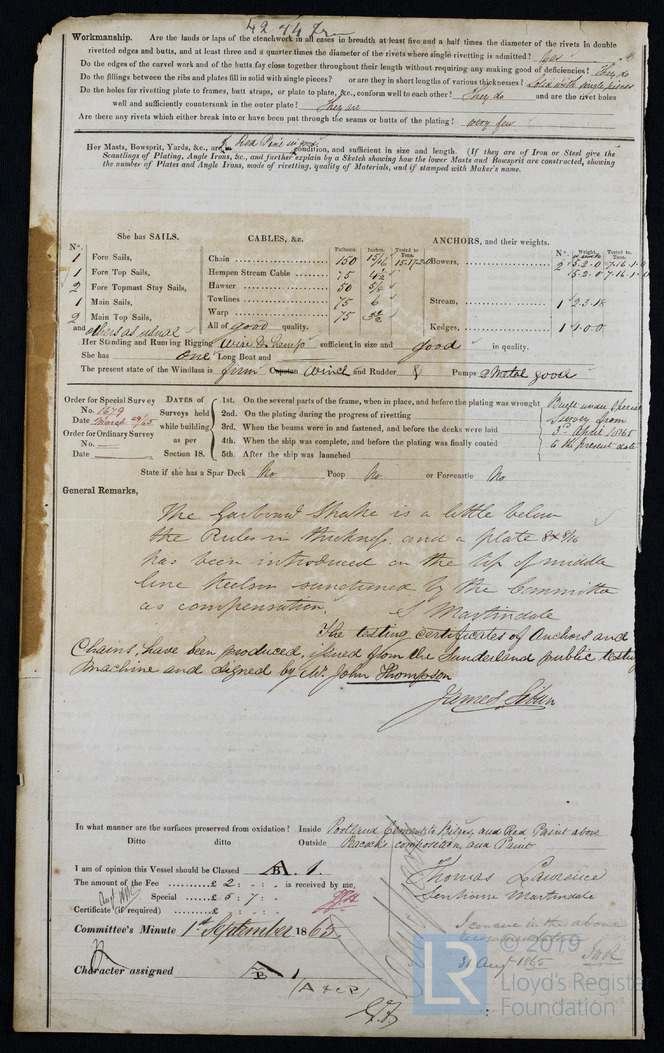 42 74 Irn
Workmanship. Are the lands or laps of the clenchwork in all cases in breadth at least five and a half times the diameter of the rivets in double
rivetted edges and butts, and at least three and a quarter times the diameter of the rivets where single rivetting is admitted? Yes
Do the edges of the carvel work and of the butts fay close together throughout their length without requiring any making good of deficiencies? They do
Do the fillings between the ribs and plates fill in solid with single pieces? or are they in short lengths of various thicknesses? Solid with single pieces
Do the holes for rivetting plate to frames, butt straps, or plate to plate, &c., conform well to each other? They do and are the rivet holes
well and sufficiently countersunk in the outer plate? They are
Are there any rivets which either break into or have been put through the seams or butts of the plating? very few
Her Masts, Bowsprit, Yards, &c., are of Red Pine in good condition, and sufficient in size and length. (If they are of Iron or Steel give the
Scantlings of Plating, Angle Irons, &c., and further explain by a Sketch showing how the lower Masts and Bowsprit are constructed, showing
the number of Plates and Angle Irons, mode of rivetting, quality of Materials, and if stamped with Maker's name.
She has SAILS. CABLES, &c. Fathoms. Inches. Tested to Tons. ANCHORS, and their weights.
No. No. Weight. Tested to Tons.
1 Fore Sails, Chain 150 15/16 15.17.2.0 Bowers, 2 5.2.0 7.16.1.0
1 Fore Top Sails, Hempen Stream Cable 75 4½ 5.2.0 7.16.1.0
2 Fore Topmast Stay Sails, Hawser 50
1 Main Sails, Towlines 75 6 Stream, 1 2.3.18
2 Main Top Sails, Warp 75 3½
and others as usual All of good quality. Kedges, 1 1.0.0
Her Standing and Running Rigging Wire & Hemp sufficient in size and good in quality.
She has one Long Boat and
The present state of the Windlass is firm Capstan Winch and Rudder & Pumps 2 Metal good
Order for Special Survey No. 1679 Date March 29/65
Order for Ordinary Survey No. Date
DATES of Surveys held while building as per Section 18.
1st. On the several parts of the frame, when in place, and before the plating was wrought
2nd. On the plating during the progress of rivetting
3rd. When the beams were in and fastened, and before the decks were laid
4th. When the ship was complete, and before the plating was finally coated
5th. After the ship was launched
Built under Special
Survey from
3rd April 1865
to the present date
State if she has a Spar Deck No Poop No or Forecastle No
General Remarks,
The Garboard Strake is a little below
the Rules in thickness, and a plate 8x8/16
has been introduced on the top of middle
line Keelson sanctioned by the Committee
as compensation. S Martindale
The testing certificates of Anchors and
Chains, have been produced, issued from the Sunderland public testing
machine and signed by Mr. John Thompson
James
In what manner are the surfaces preserved from oxidation? Inside Portland Cement to Bilges, and Red Paint above
Ditto ditto Outside Peacock's composition, and Paint
I am of opinion this Vessel should be Classed B 1.
The amount of the Fee £ 2 : - : - is received by me,
Special £ 5 : 7 : -
Certificate (if required) £ : :
Thomas Lawrence
Senhouse Martindale
I concur in the above
31 Aug 1865
Committee's Minute 1st September 1865.
Character assigned B 1
(A & CP)
© 2019
LR
Lloyd's Register
Foundation